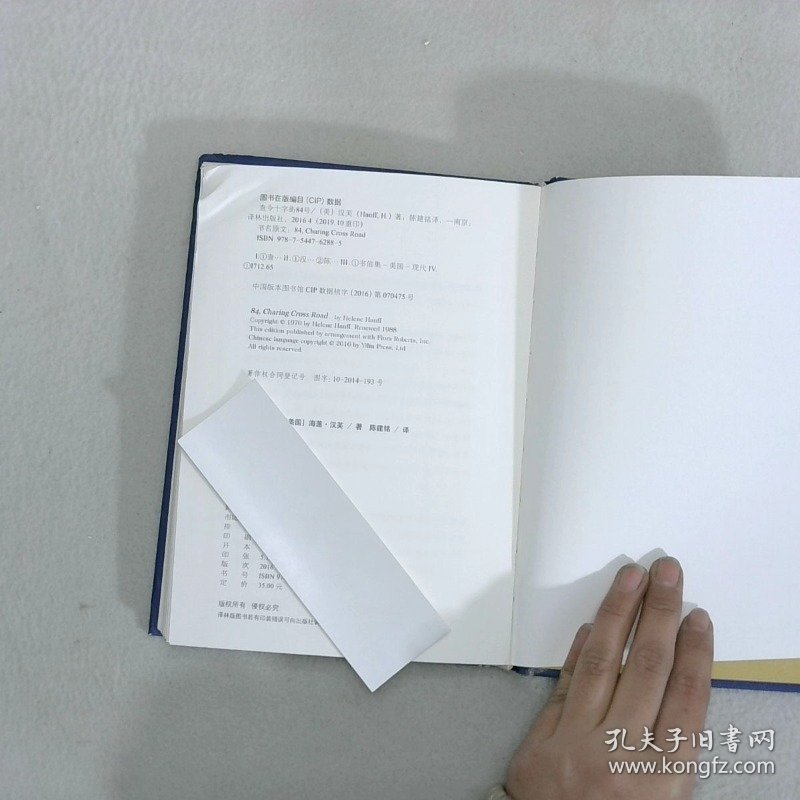 图书在版编目（CIP）数据
查令十字街84号／（美）汉芙（Hanff, H.）著；陈建铭译. —南京:
译林出版社, 2016.4（2019.10重印）
书名原文: 84, Charing Cross Road
ISBN 978-7-5447-6288-5
Ⅰ.①查… Ⅱ.①汉… ②陈… Ⅲ.①书信集－美国－现代 Ⅳ.
①I712.65
中国版本图书馆CIP数据核字（2016）第070475号
84, Charing Cross Road by Helene Hanff
Copyright © 1970 by Helene Hanff. Renewed 1988.
This edition published by arrangement with Flora Roberts, Inc.
Chinese language copyright © 2016 by Yilin Press, Ltd
All rights reserved.
著作权合同登记号 图字: 10-2014-193号
美国］海莲·汉芙／著 陈建铭／译
印
开 本
印 张
版 次 2016
书 号 ISBN 9
定 价 35.00元
版权所有 侵权必究
译林版图书若有印装错误可向出版社
孔夫子旧书网
www.kongfz.com